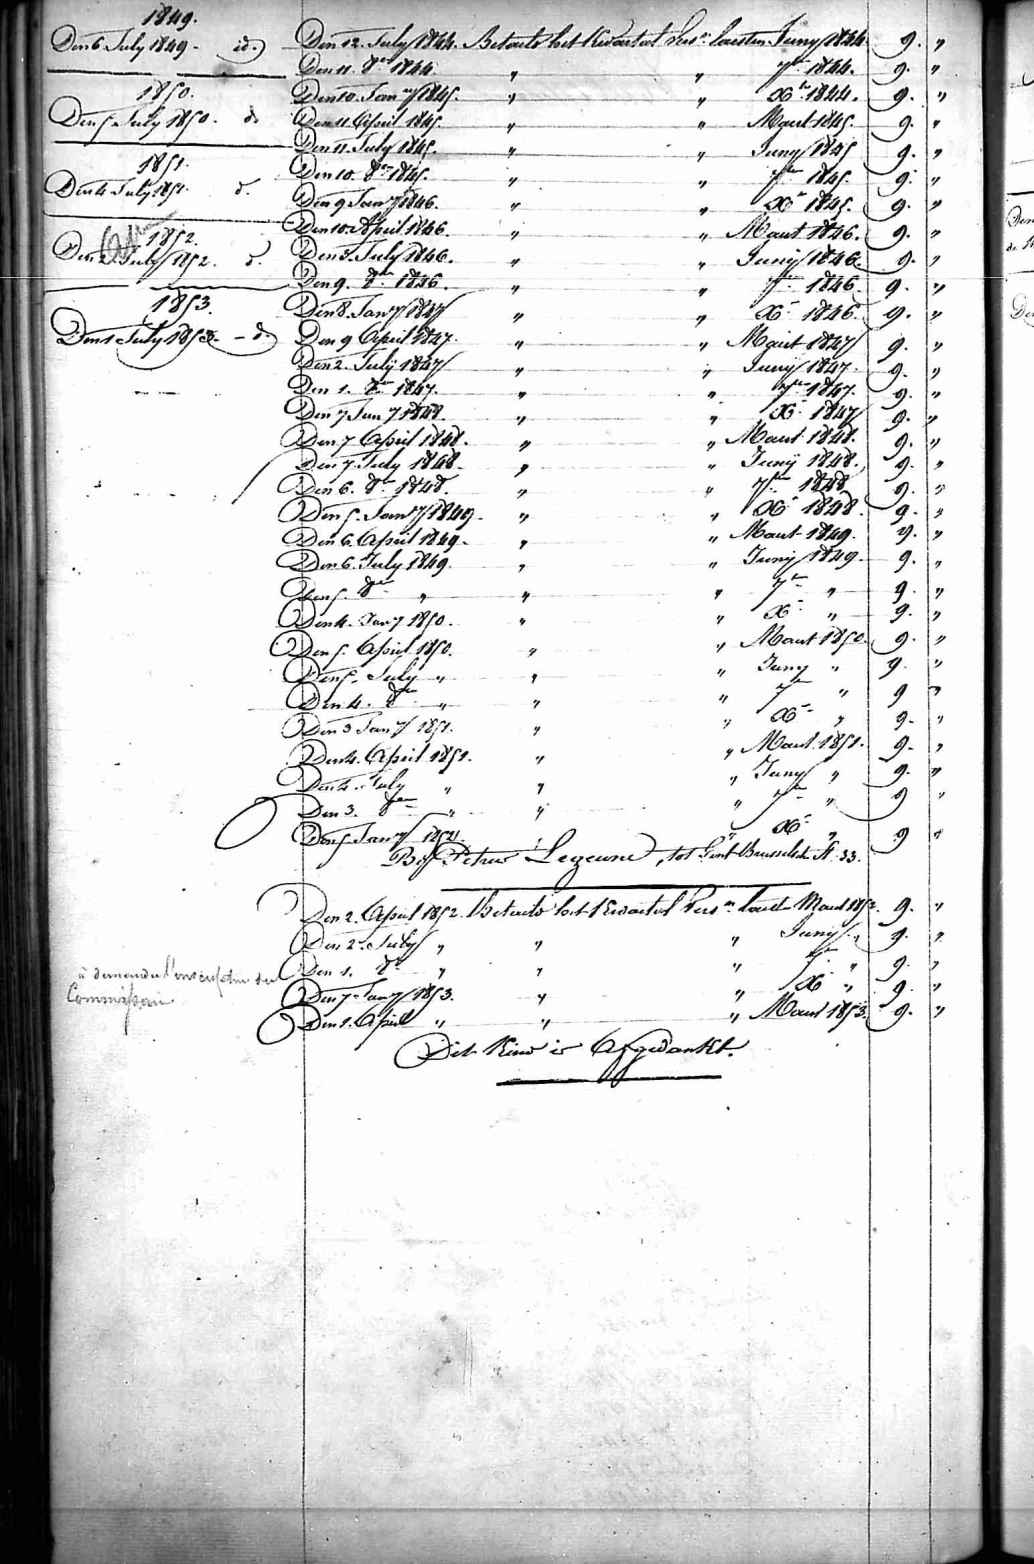 1849.
Den 6 July 1849. id.
1850.
Den 5 July 1850. d.
1851.
Den 4 July 1851. d.
1852.
Den 2 July 1852. d.
1853.
Den 1 July 1853. - d.
Den 12. July 1844. Betaald het Kwartaal laasten Juny 1844. 9. "
Den 11. 8er 1844. " " 7er 1844. 9. "
Den 10. Jany 1845. " " Xr 1844. 9. "
Den 11. April 1845. " " Maart 1845. 9. "
Den 11. July 1845. " " Juny 1845 9. "
Den 10. 8er 1845. " " 7er 1845. 9. "
Den 9 Jany 1846. " " Xr 1845. 9. "
Den 10. April 1846. " " Maart 1846. 9. "
Den 3. July 1846. " " Juny 1846. 9. "
Den 9. 8er 1846. " " 7er 1846. 9. "
Den 8. Jany 1847 " " Xr 1846. 9. "
Den 9 April 1847. " " Maart 1847 9. "
Den 2. July 1847 " " Juny 1847. 9. "
Den 1. 8er 1847. " " 7er 1847. 9. "
Den 7 Jany 1848. " " Xr 1847 9. "
Den 7 April 1848. " " Maart 1848. 9. "
Den 7. July 1848. " " Juny 1848. 9. "
Den 6. 8er 1848. " " 7er 1848 9. "
Den 5. Jany 1849. " " Xr 1848. 9. "
Den 6. April 1849. " " Maart 1849. 9. "
Den 6. July 1849. " " Juny 1849. 9. "
Den 5. 8er " " " 7er " 9. "
Den 4. Jany 1850. " " Xr " 9. "
Den 5. April 1850. " " Maart 1850. 9. "
Den 5. July " " " Juny " 9. "
Den 4. 8er " " " 7er " 9 "
Den 3 Jany 1851. " " Xr " 9. "
Den 4. April 1851. " " Maart 1851. 9. "
Den 4. July " " " Juny " 9. "
Den 3. 8er " " " 7er " 9 "
Den 5 Jany 1852. " Xr " 9 "
By Petrus Lezeune, tot Gent Brusselstr. N. 33.
Den 2. April 1852. Betaald het Kwartal Maart 1852. 9. "
Den 2. July " " " Juny " 9. "
Den 1. 8er " " " 7er " 9. "
Den 7 Jany 1853. " " Xr " 9. "
Den 1. April " " " Maart 1853. 9. "
à demander
Commission
Dit Kind is Afgedankt.